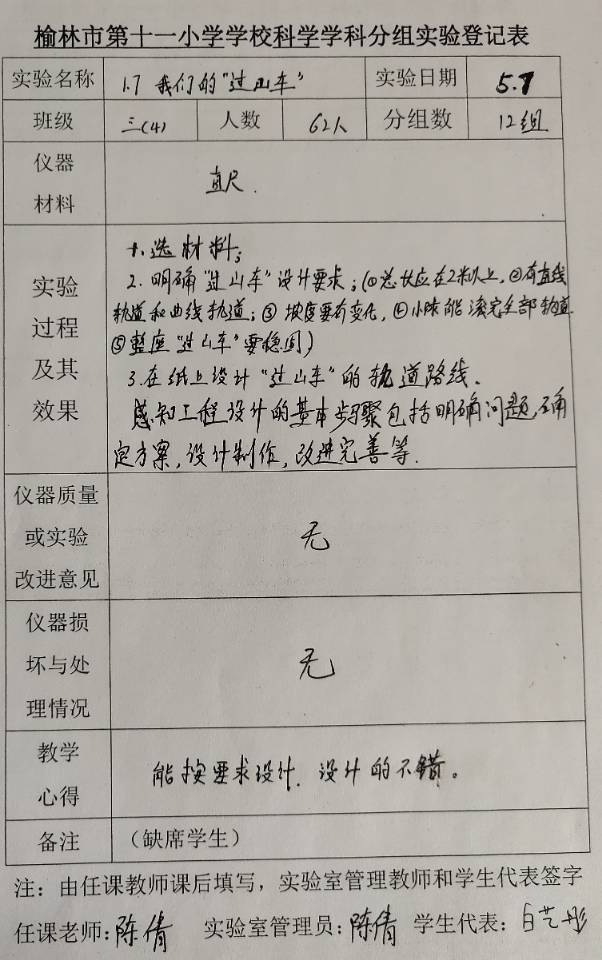 榆林市第十一小学学校科学学科分组实验登记表
实验名称 1.7 我们的“过山车” 实验日期 5.7
班级 三(4) 人数 62人 分组数 12组
仪器
材料
直尺.
实验
过程
及其
效果
1.选材料;
2.明确“过山车”设计要求;(①总长应在2米以上,②有直线
轨道和曲线轨道;③坡度要有变化,④小球能滚完全部轨道
⑤整座“过山车”要稳固)
3.在纸上设计“过山车”的轨道路线.
感知工程设计的基本步骤包括明确问题,确
定方案,设计制作,改进完善等.
仪器质量
或实验
改进意见
无
仪器损
坏与处
理情况
无
教学
心得
能按要求设计.设计的不错。
备注 (缺席学生)
注:由任课教师课后填写,实验室管理教师和学生代表签字
任课老师:陈倩 实验室管理员:陈倩 学生代表:白艺彤